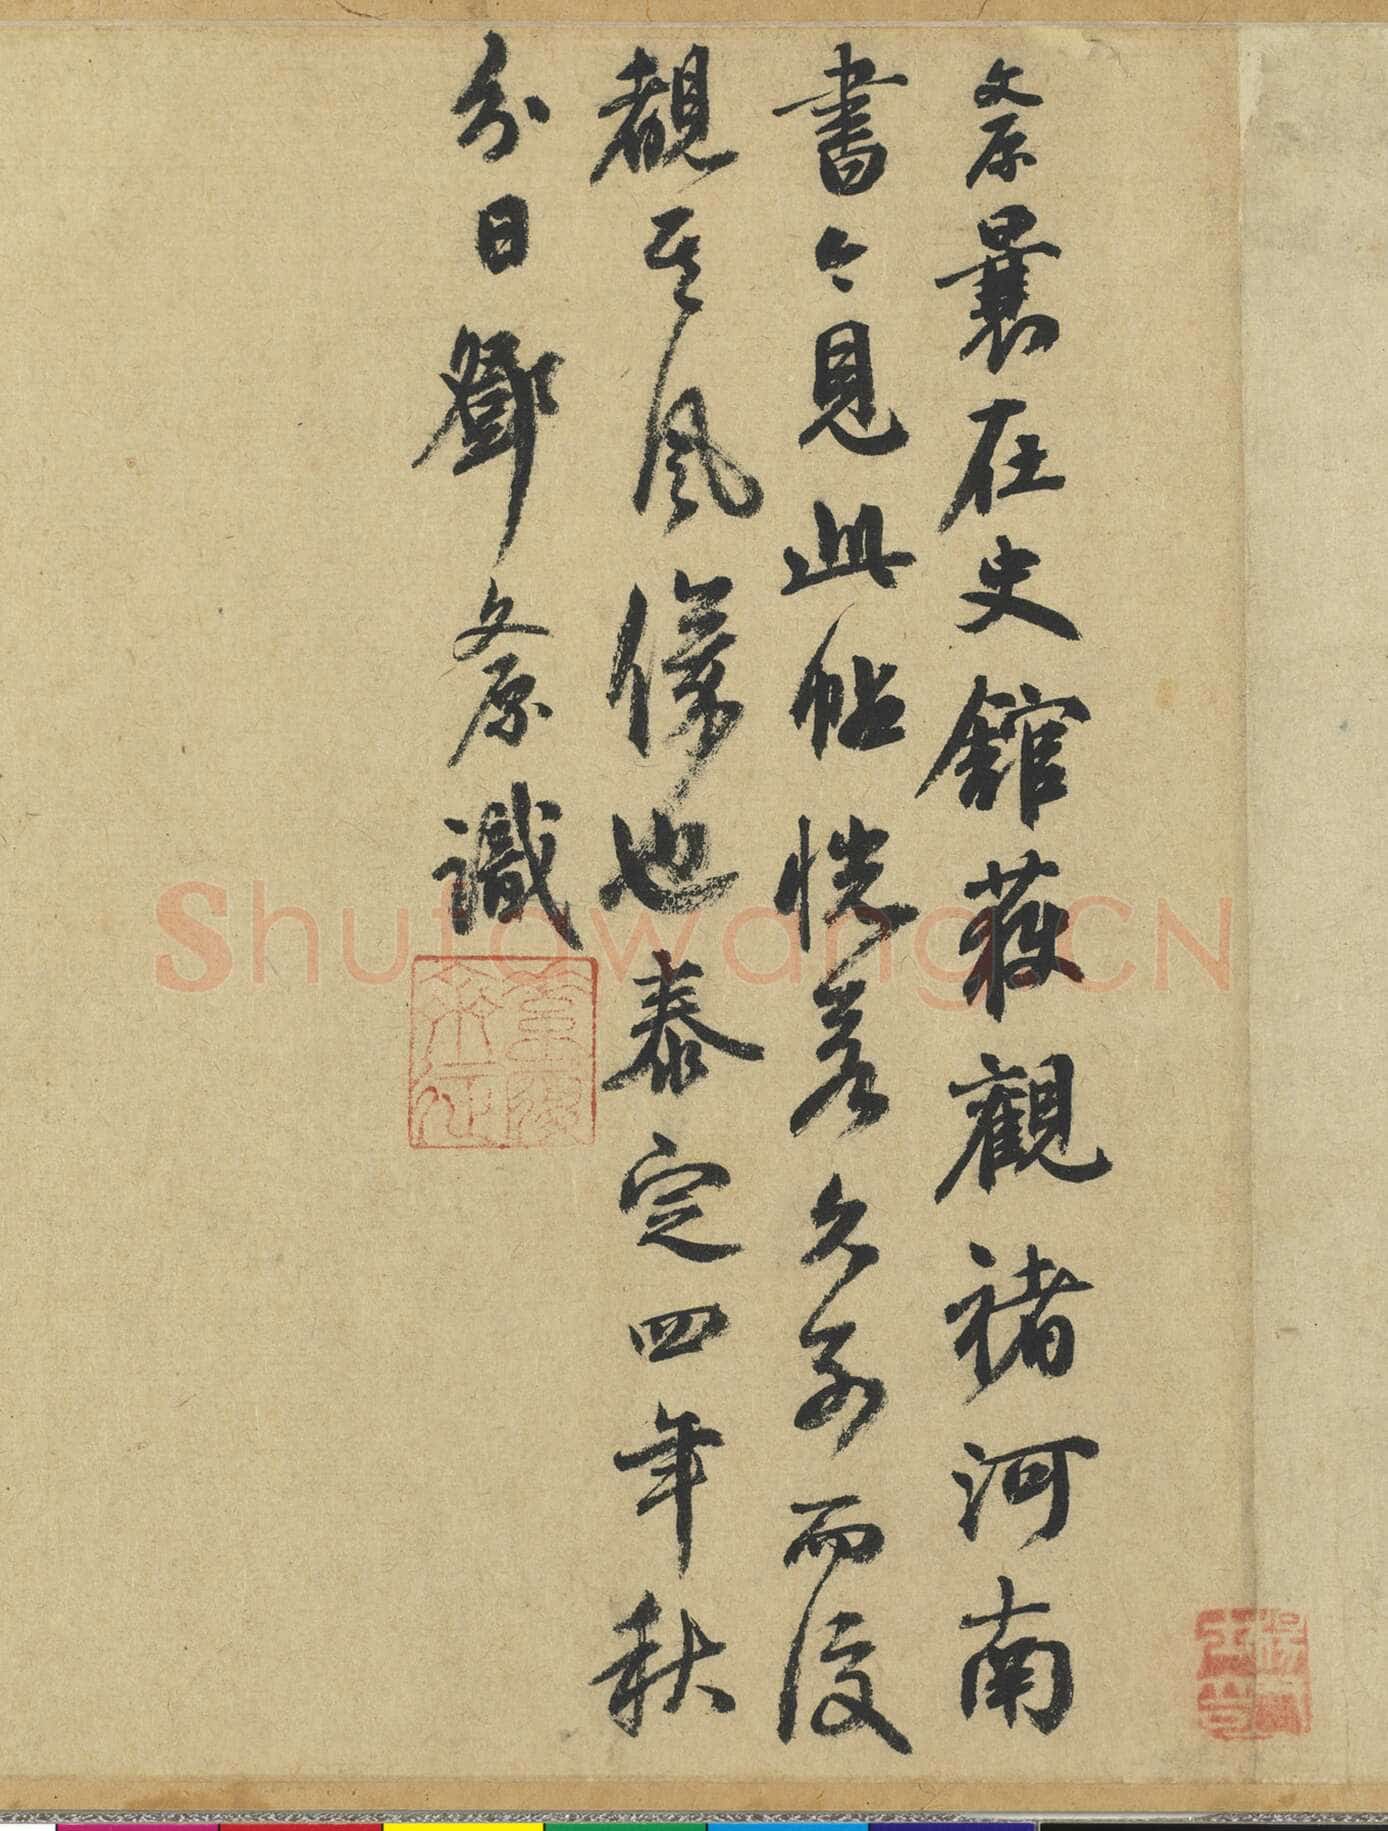 文原曩在史館獲觀褚河南
書今見此帖恍若久別而復
覩其風儀也泰定四年秋
分日鄧文原識
Shufawang.CN